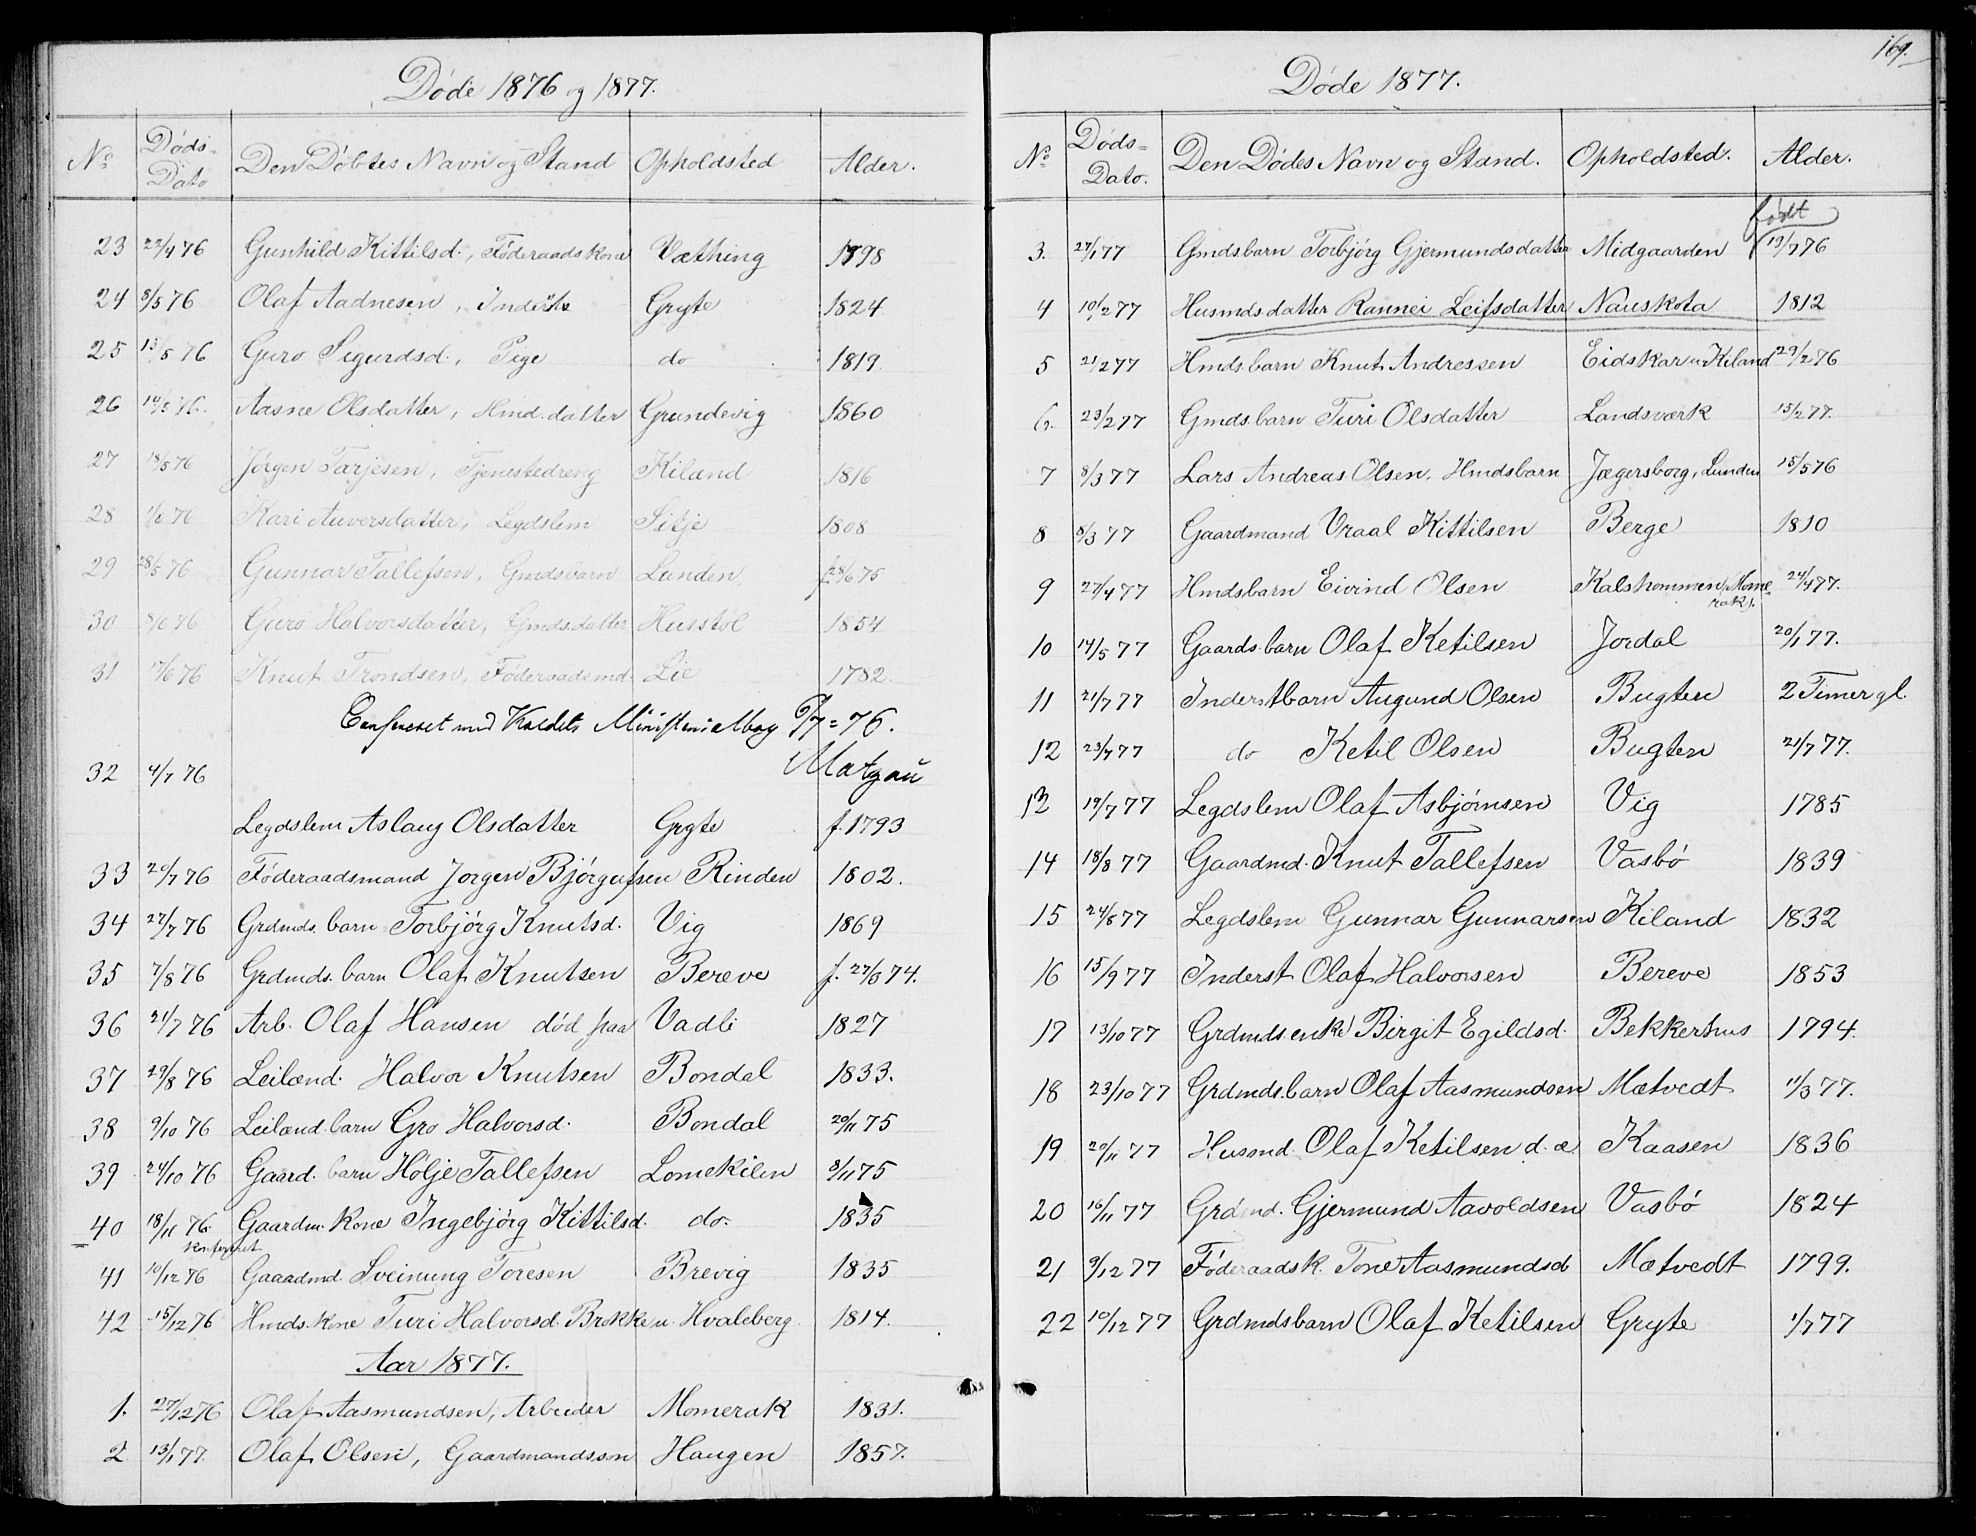 Døde 1876 og 1877.
No Døds-Dato Den Døbtes Navn og Stand Opholdsted Alder.
23 22/4 76 Gunhild Kittilsd., Føderaadskone Væthing 1798
24 8/5 76 Olaf Aadnesen, Inderste Gryte 1824
25 13/5 76 Guro Sigurdsd., Pige do 1819
26 14/5 76. Aasne Olsdatter, Hmd.datter Grundevig 1860
27 18/5 76 Jørgen Tarjesen, Tjenestedreng Kiland 1816
28 1/6 76 Kari Auversdatter, Legdslem Sitje 1808
29 28/5 76 Gunnar Tallefsen, Gmdsbarn Lunden f. 28/6 75
30 8/6 76 Guro Halvorsdatter, Gmds.datter Husstøl 1854
31 17/6 76 Knut Trondsen, Føderaadsmd. Lie 1782.
Confereret med Kaldets Ministerialbog 6/7=76.
32 4/7 76 Matzau
Legdslem Aslaug Olsdatter Gryte f. 1793
33 20/7 76 Føderaadsmand Jørgen Bjørgufsen Rinden 1802.
34 27/7 76 Grdmds. barn Torbjørg Knutsd. Vig 1869
35 7/8 76 Grdmds. barn Olaf Knutsen Bereve f. 27/3 74.
36 21/7 76 Arb. Olaf Hansen død paa Vadli 1827
37 29/8 76 Leilænd. Halvor Knutsen Bondal 1833.
38 9/10 76 Leilænd.barn Gro Halvorsd. Bondal 20/11 75
39 24/10 76 Gaard. barn Hølje Tallefsen Lomekilen 8/11 75
40 18/11 76. Gaardm. Kone Ingebjørg Kittilsd. do. 1835
Konfereret
41 10/12 76 Gaaadmd. Sveinung Toresen Brevig 1835
42 15/12 76 Hmds.kone Turi Halvorsd. Brekke u. Hvaleberg. 1814.
Aar 1877.
1. 27/12 76 Olaf Aasmundsen, Arbeider Momerak 1831.
2 13/1 77. Olaf Olsen, Gaardmandssøn Haugen 1857.
169.
Døde 1877.
No Døds-Dato. Den Dødes Navn og Stand. Opholdsted. Alder.
født
3. 27/1 77 Gmdsbarn Torbjørg Gjermundsdatter Midgaarden 19/7 76
4 10/2 77 Husmdsdatter Rannei Leifsdatter Nauskota 1812
5 21/2 77 Hmds.barn Knut Andressen Eidskar u. Kiland 29/2 76
6. 23/2 77 Gmds.barn Turi Olsdatter Landsværk 15/2 77.
7 8/3 77 Lars Andreas Olsen, Hmdsbarn Jægersborg, Lunden 15/5 76
8 8/3 77 Gaardmand Vraal Kittilsen Berge 1810
9 27/4 77 Hmdsbarn Eivind Olsen Kalshommen, Mome-
rak.
24/4 77.
10 14/5 77 Gaards.barn Olaf Ketilsen Jordal 20/1 77.
11 21/7 77 Inderstbarn Augund Olsen Bugten 2 Timer gl.
12 23/7 77 do Ketil Olsen Bugten 21/7 77.
13 19/7 77 Legdslem Olaf Asbjørnsen Vig 1785
14 18/8 77 Gaardmd. Knut Tallefsen Vasbø 1839
15 24/8 77 Legdslem Gunnar Gunnarsen Kiland 1832
16 15/9 77 Inderst Olaf Halvorsen Bereve 1853
17 13/10 77 Grdmds.enke Birgit Egildsd. Bekkerhus 1794.
18 23/10 77 Grdmds.barn Olaf Aasmundsen Mætvedt 11/3 77.
19 20/11 77 Husmd. Olaf Ketilsen d. æ. Kaasen 1836
20 16/11 77 Grdmd. Gjermund Aavoldsen Vasbø 1824
21 9/12 77 Føderaadsk. Tone Aasmundsd. Mætvedt 1799.
22 10/12 77 Grdmdsbarn Olaf Ketilsen Gryte 1/7 77